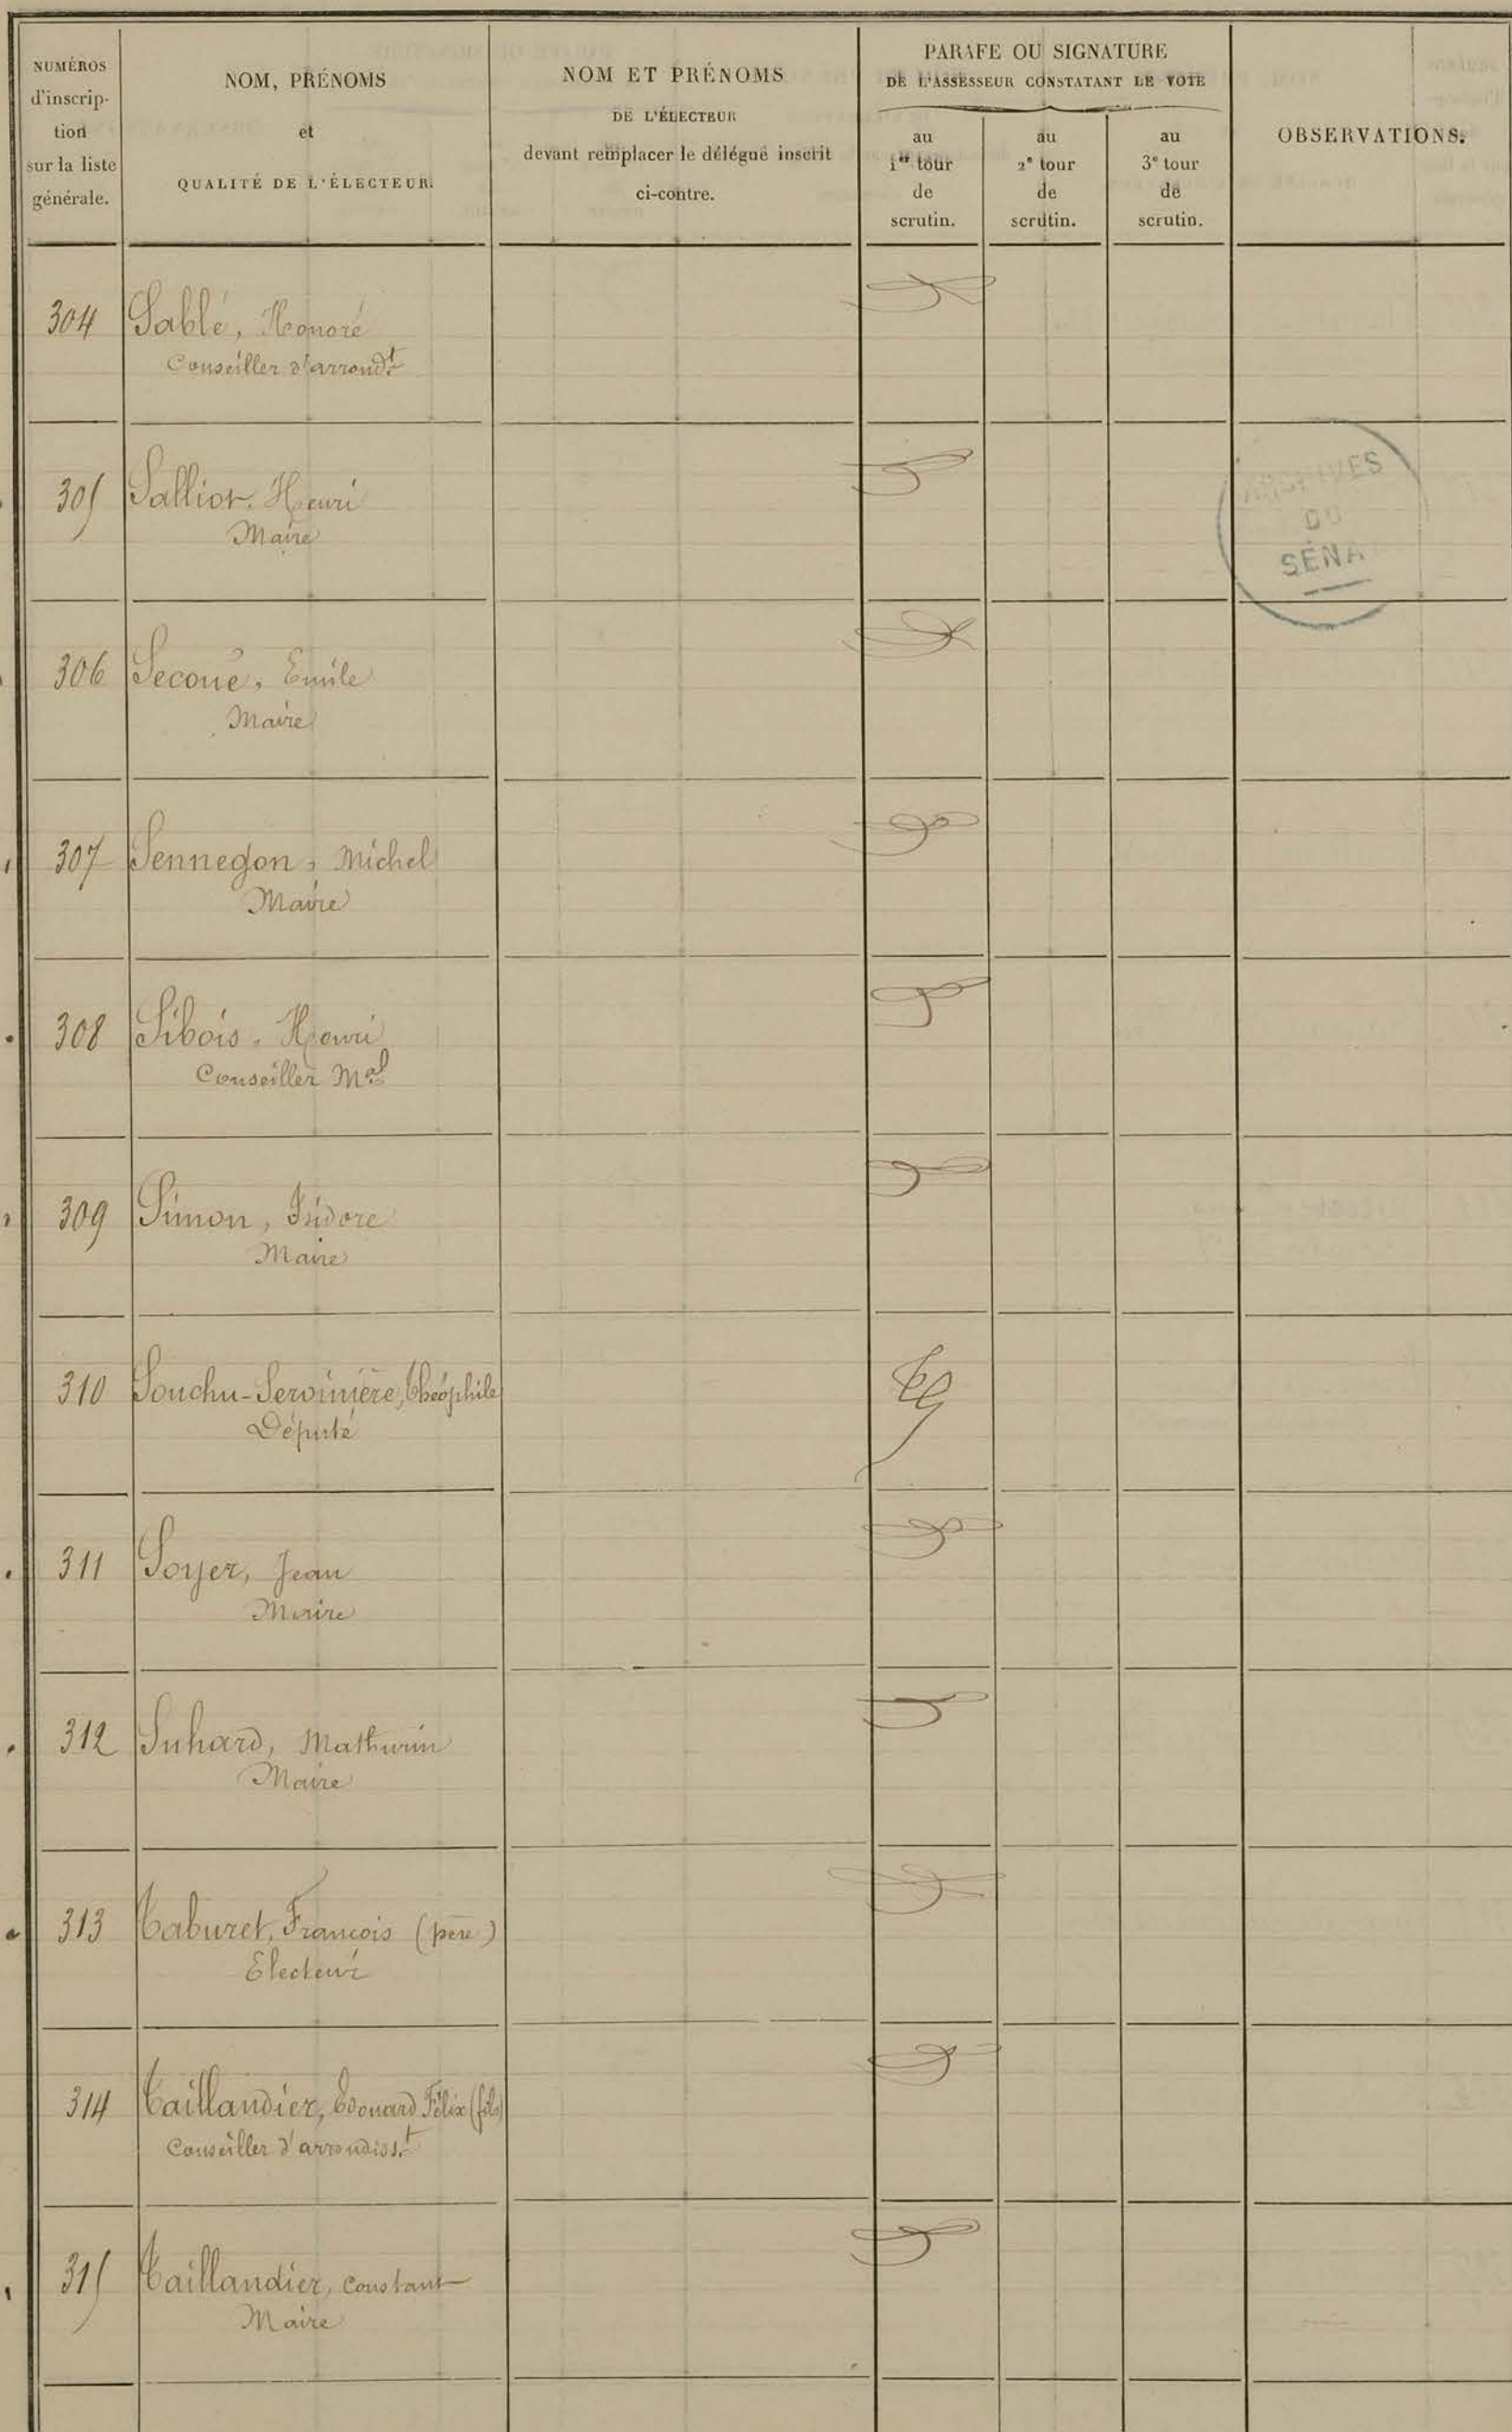 NUMÉROS
d'inscrip-
tion
sur la liste
générale.
NOM, PRÉNOMS
et
QUALITÉ DE L'ÉLECTEUR.
NOM ET PRÉNOMS
DE L'ÉLECTEUR
devant remplacer le délégué inscrit
ci-contre.
PARAFE OU SIGNATURE
DE L'ASSESSEUR CONSTATANT LE VOTE
au
1er tour
de
scrutin.
au
2e tour
de
scrutin.
au
3e tour
de
scrutin.
OBSERVATIONS.
304 Sablé, Honoré
Conseiller d'arrondt
305 Salliot, Henri
Maire
ARCHIVES
DU
SÉNA
306 Secoué, Emile
Maire
307 Sennegon, Michel
Maire
308 Sibois, Henri
Conseiller Mal
309 Simon, Isidore
Maire
310 Souchu-Servinière, Théophile
Député
311 Soyer, Jean
Maire
312 Suhard, Mathurin
Maire
313 Taburet, François (père)
Electeur
314 Taillandier, Edouard Félix (fils)
Conseiller d'arrondisst
315 Taillandier, Constant
Maire